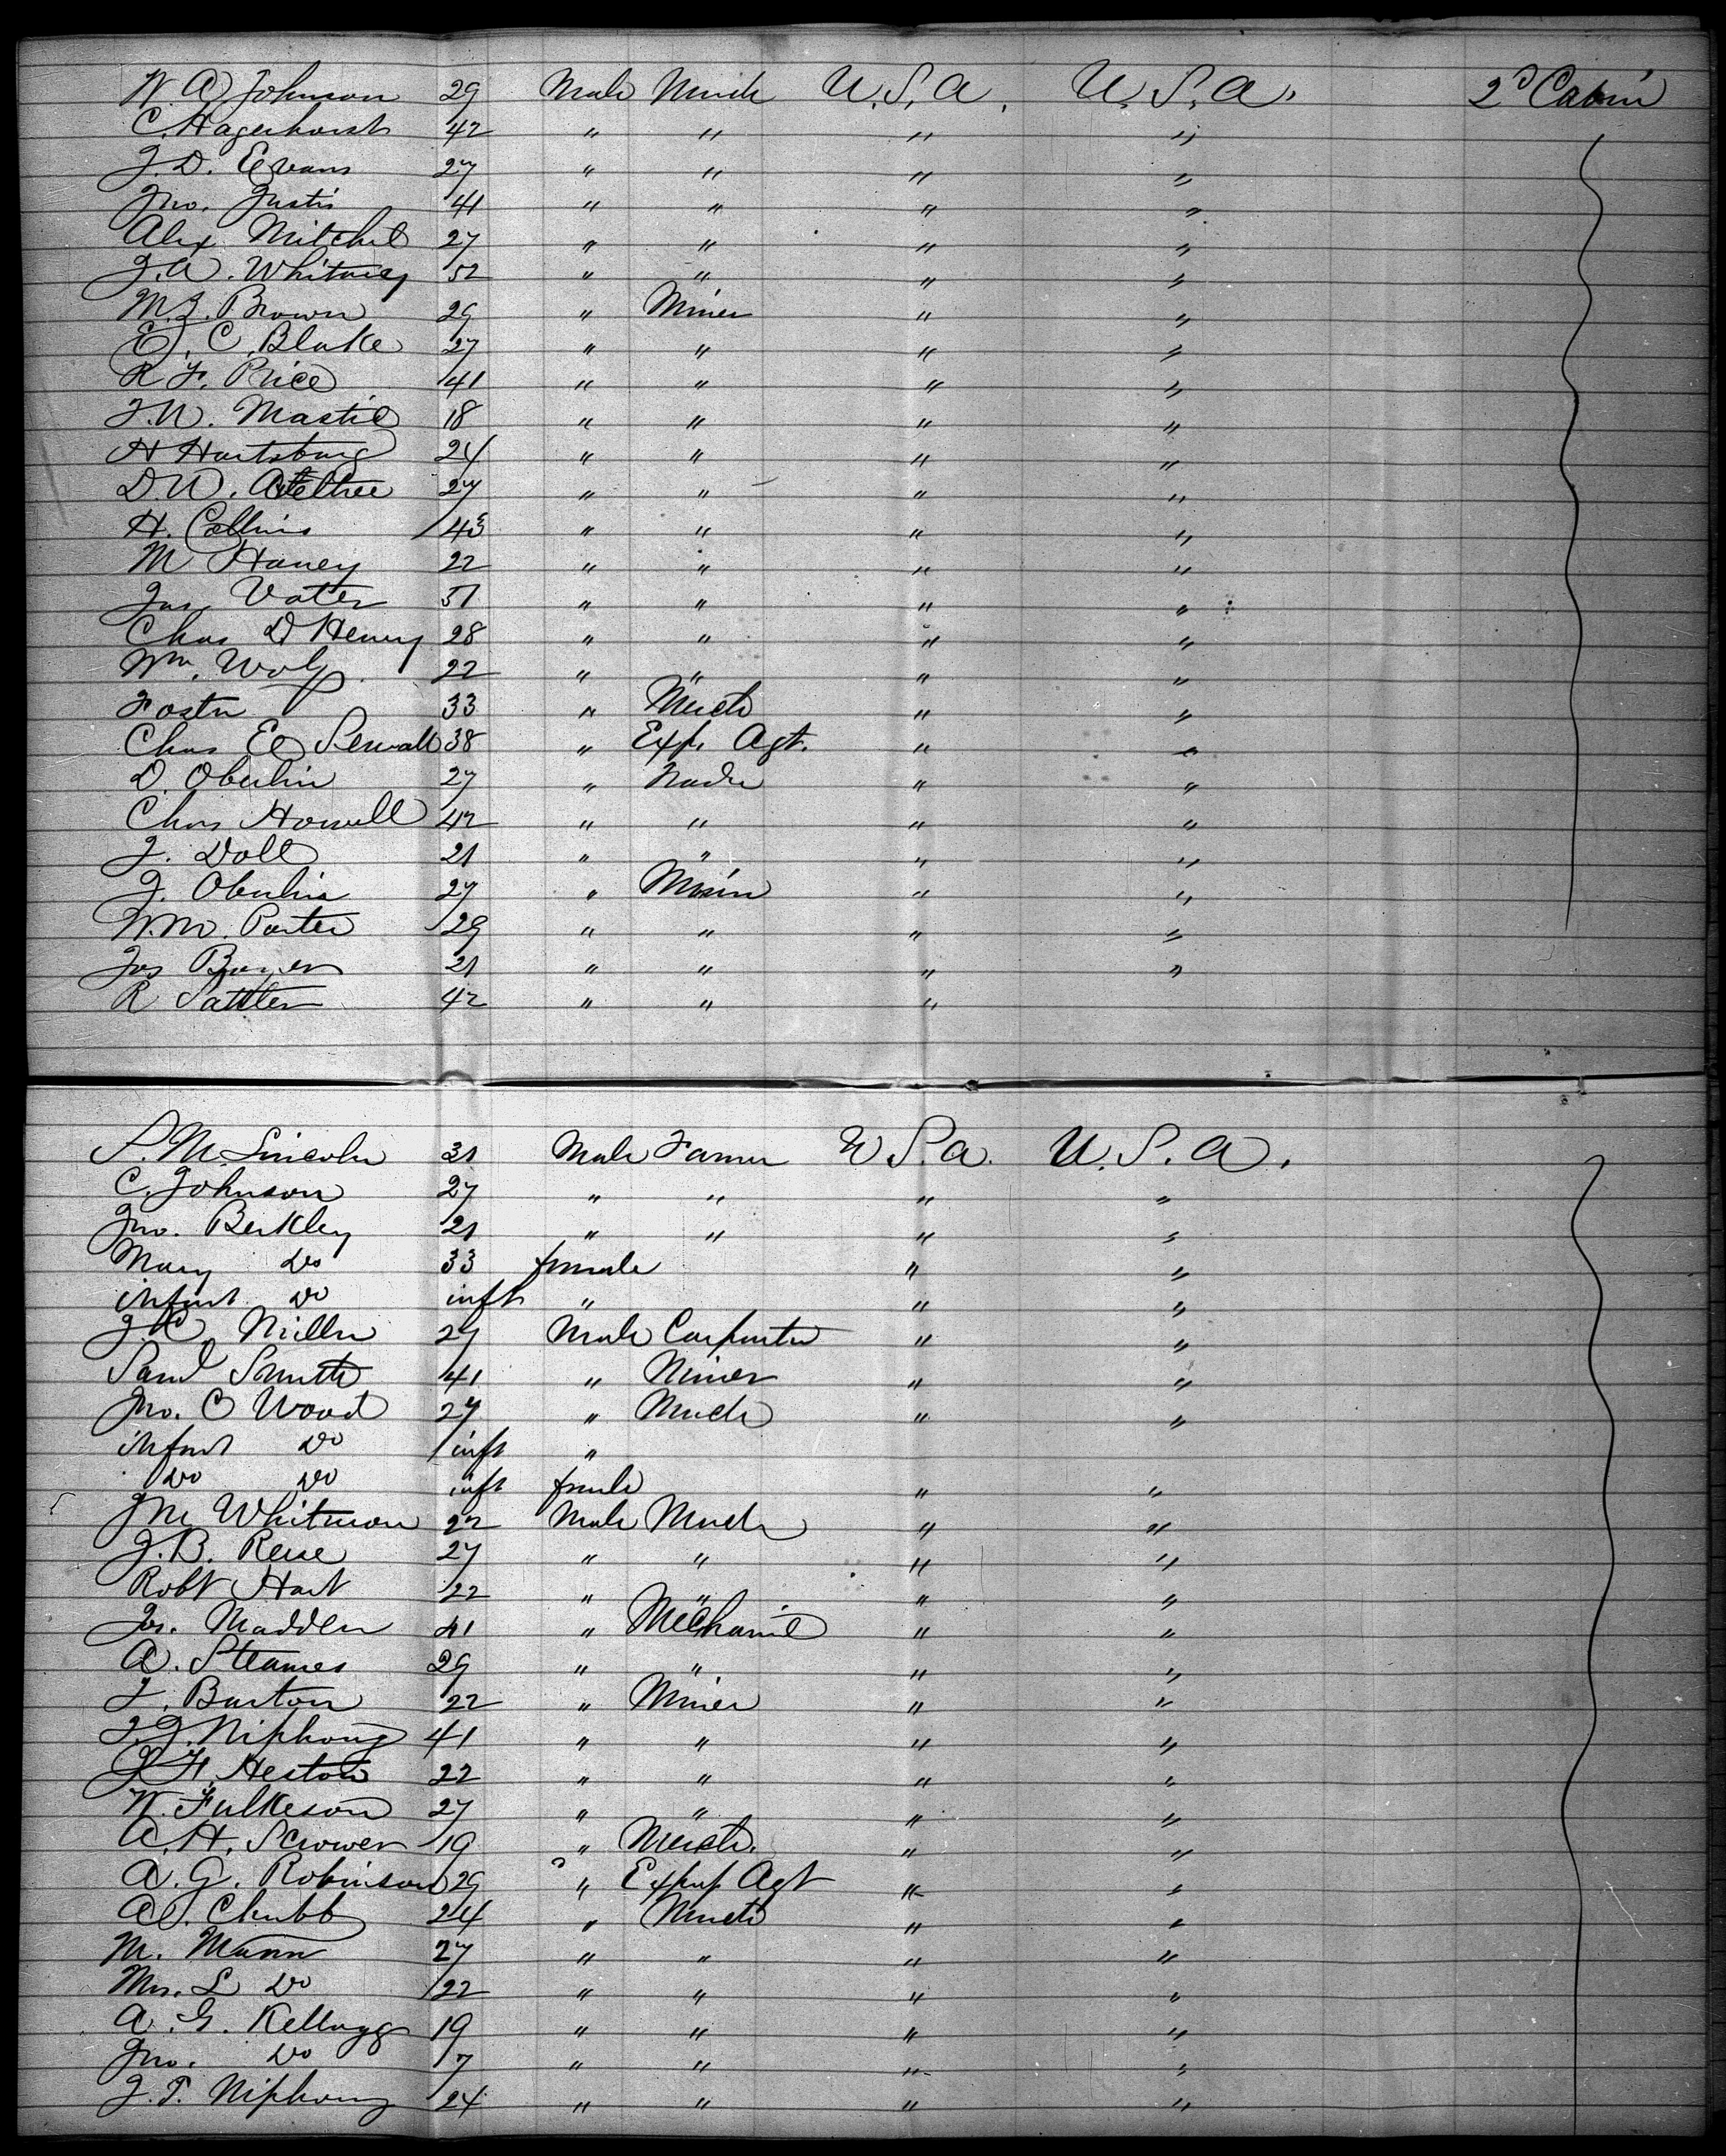 W. A. Johnson 29 Male Merch U.S.A. U.S.A. 2d Cabin
C. Hagerhorst 42 " " " "
J. D. Evans 27 " " " "
Jno. Justis 41 " " " "
Alex Mitchel 27 " " " "
J. A. Whitney 52 " " " "
M. J. Brown 29 " Miner " "
E. C. Blake 27 " " " "
R. F. Price 41 " " " "
J. W. Mastic 18 " " " "
H Hartsburg 24 " " " "
D. W. 27 " " " "
H. Collins 43 " " " "
M Haney 22 " " " "
Jas Vater 51 " " " "
Chas D Henry 28 " " " "
Wm. Wolf 22 " " " "
Foster 33 " Merch " "
Chas E Sewall 38 " Exp. Agt. " "
D. Oberlin 27 " " "
Chas Howell 42 " " " "
J. Doll 21 " " " "
J. Oberlin 27 " " "
W. M. Porter 29 " " " "
Jas 21 " " " "
R Sattler 42 " " "
S. M. Lincoln 31 Male Farmer U.S.A. U.S.A.
C. Johnson 27 " " " "
Jno. Berkley 21 " " " "
Mary Do 33 female " "
infant Do inft " " "
J. C. Miller 29 Male Carpenter " "
Saml Smith 41 " Miner " "
Jno. C Wood 27 " Merch " "
infant Do inft "
Do Do inft female " "
Jn Whitmon 22 Male Merch " "
J. B. Reese 27 " " " "
Robt Hart 22 " " " "
Jas. Madden 41 " Mechanic " "
A. Stearnes 29 " " " "
J. Burton 22 " Miner " "
J. J. Niphong 41 " " " "
J. F. Heston 22 " " " "
W. Fulkeson 27 " " " "
A. H. Scrower 19 " Merch. " "
A. G. Robinson 29 " Exp Agt " "
A. S. Chubb 24 " Merch " "
M. Mann 27 " " " "
Mrs. L Do 22 " " " "
A. G. Kellogg 19 " " " "
Jno. Do 7 " " " "
J. T. Niphong 24 " " " "